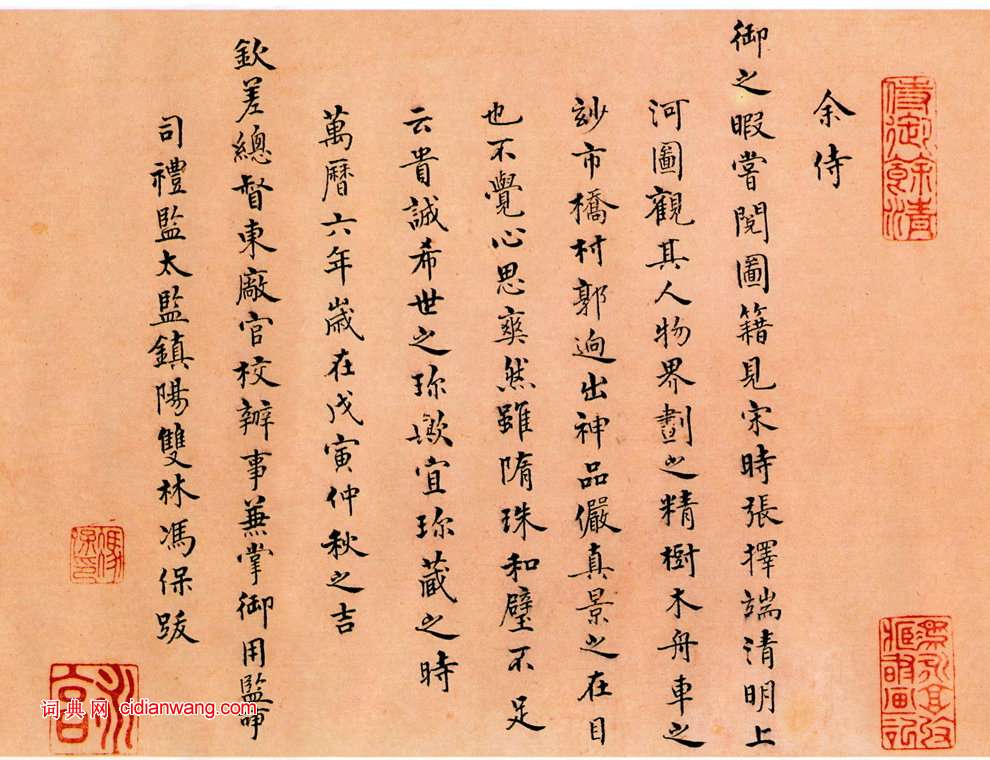 余侍
御之暇嘗閱圖籍見宋時張擇端清明上
河圖觀其人物界劃之精樹木舟車之
玅市橋村郭迥出神品儼真景之在目
也不覺心思爽然雖隋珠和璧不足
云貴誠希世之珎歟宜珎藏之時
萬曆六年歲在戊寅仲秋之吉
欽差總督東廠官校辦事兼掌御用監印
司禮監太監鎮陽雙林馮保跋
侍御餘清
馮保印
词典网 cidianwang.com